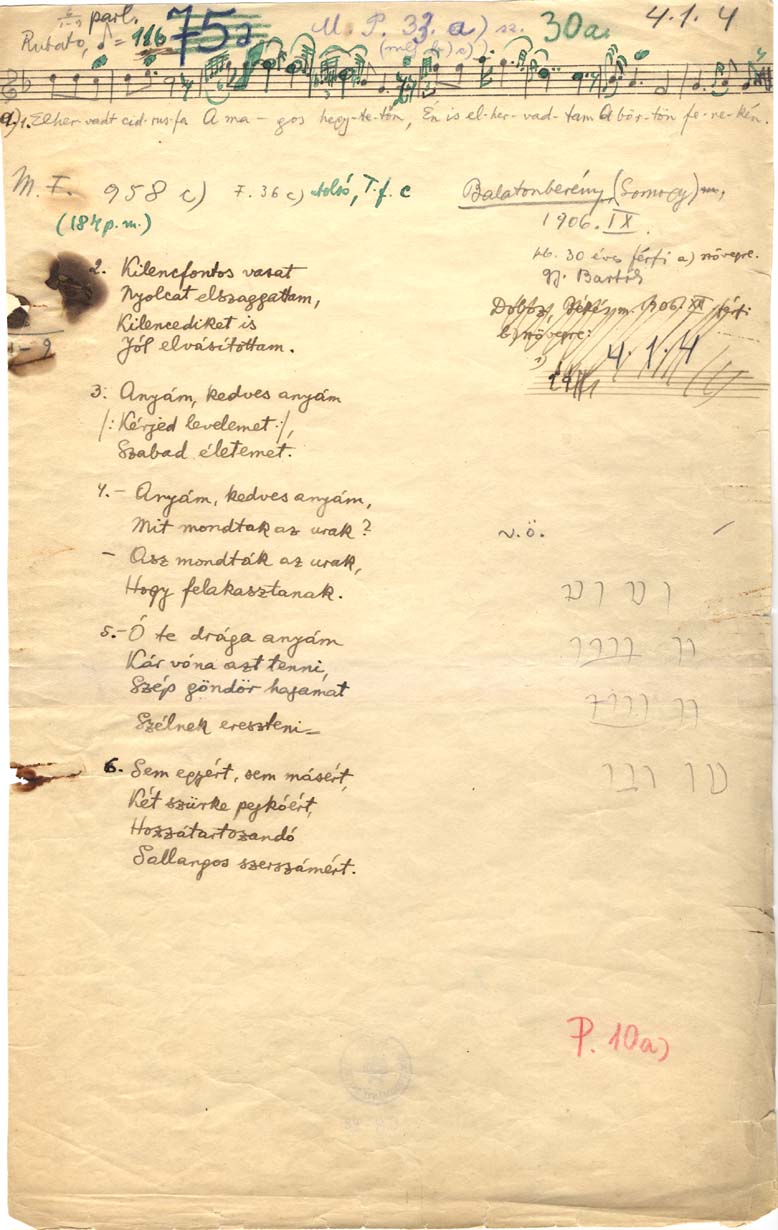 parl.
Rubato, ♩ = 116 75a M. P. 33. a) sz. 30a. 4.1.4
a) 1. Elher-vadt cid-rus-fa A ma-gos hegy-te-tőn, Én is el-her-vad-tam A bör-tön fe-ne-kén.
M. F. 958 c) F. 36 c) alsó, T.f. c Balatonberény (Somogy)
(184 p.m.) 1906. IX.
kb. 30 éves férfi a) szövegre.
gy. Bartók
2. Kilencfontos vasat
Nyolcat elszaggattam,
Kilencediket is
Jól elvásítottam.
Doboz, Békés m. 1906. XII férfi
b) szövegre:
4.1.4
3. Anyám, kedves anyám
/: Kérjed levelemet :/,
Szabad életemet.
4. – Anyám, kedves anyám,
Mit mondtak az urak?
– Asz mondták az urak,
Hogy felakasztanak.
v.ö.
5. – Ó te drága anyám
Kár vóna azt tenni,
Szép göndör hajamat
Szélnek ereszteni –
6. Sem egyért, sem másért,
Két szürke pejkóért,
Hozzátartozandó
Sallangos szerszámért.
P. 10a)